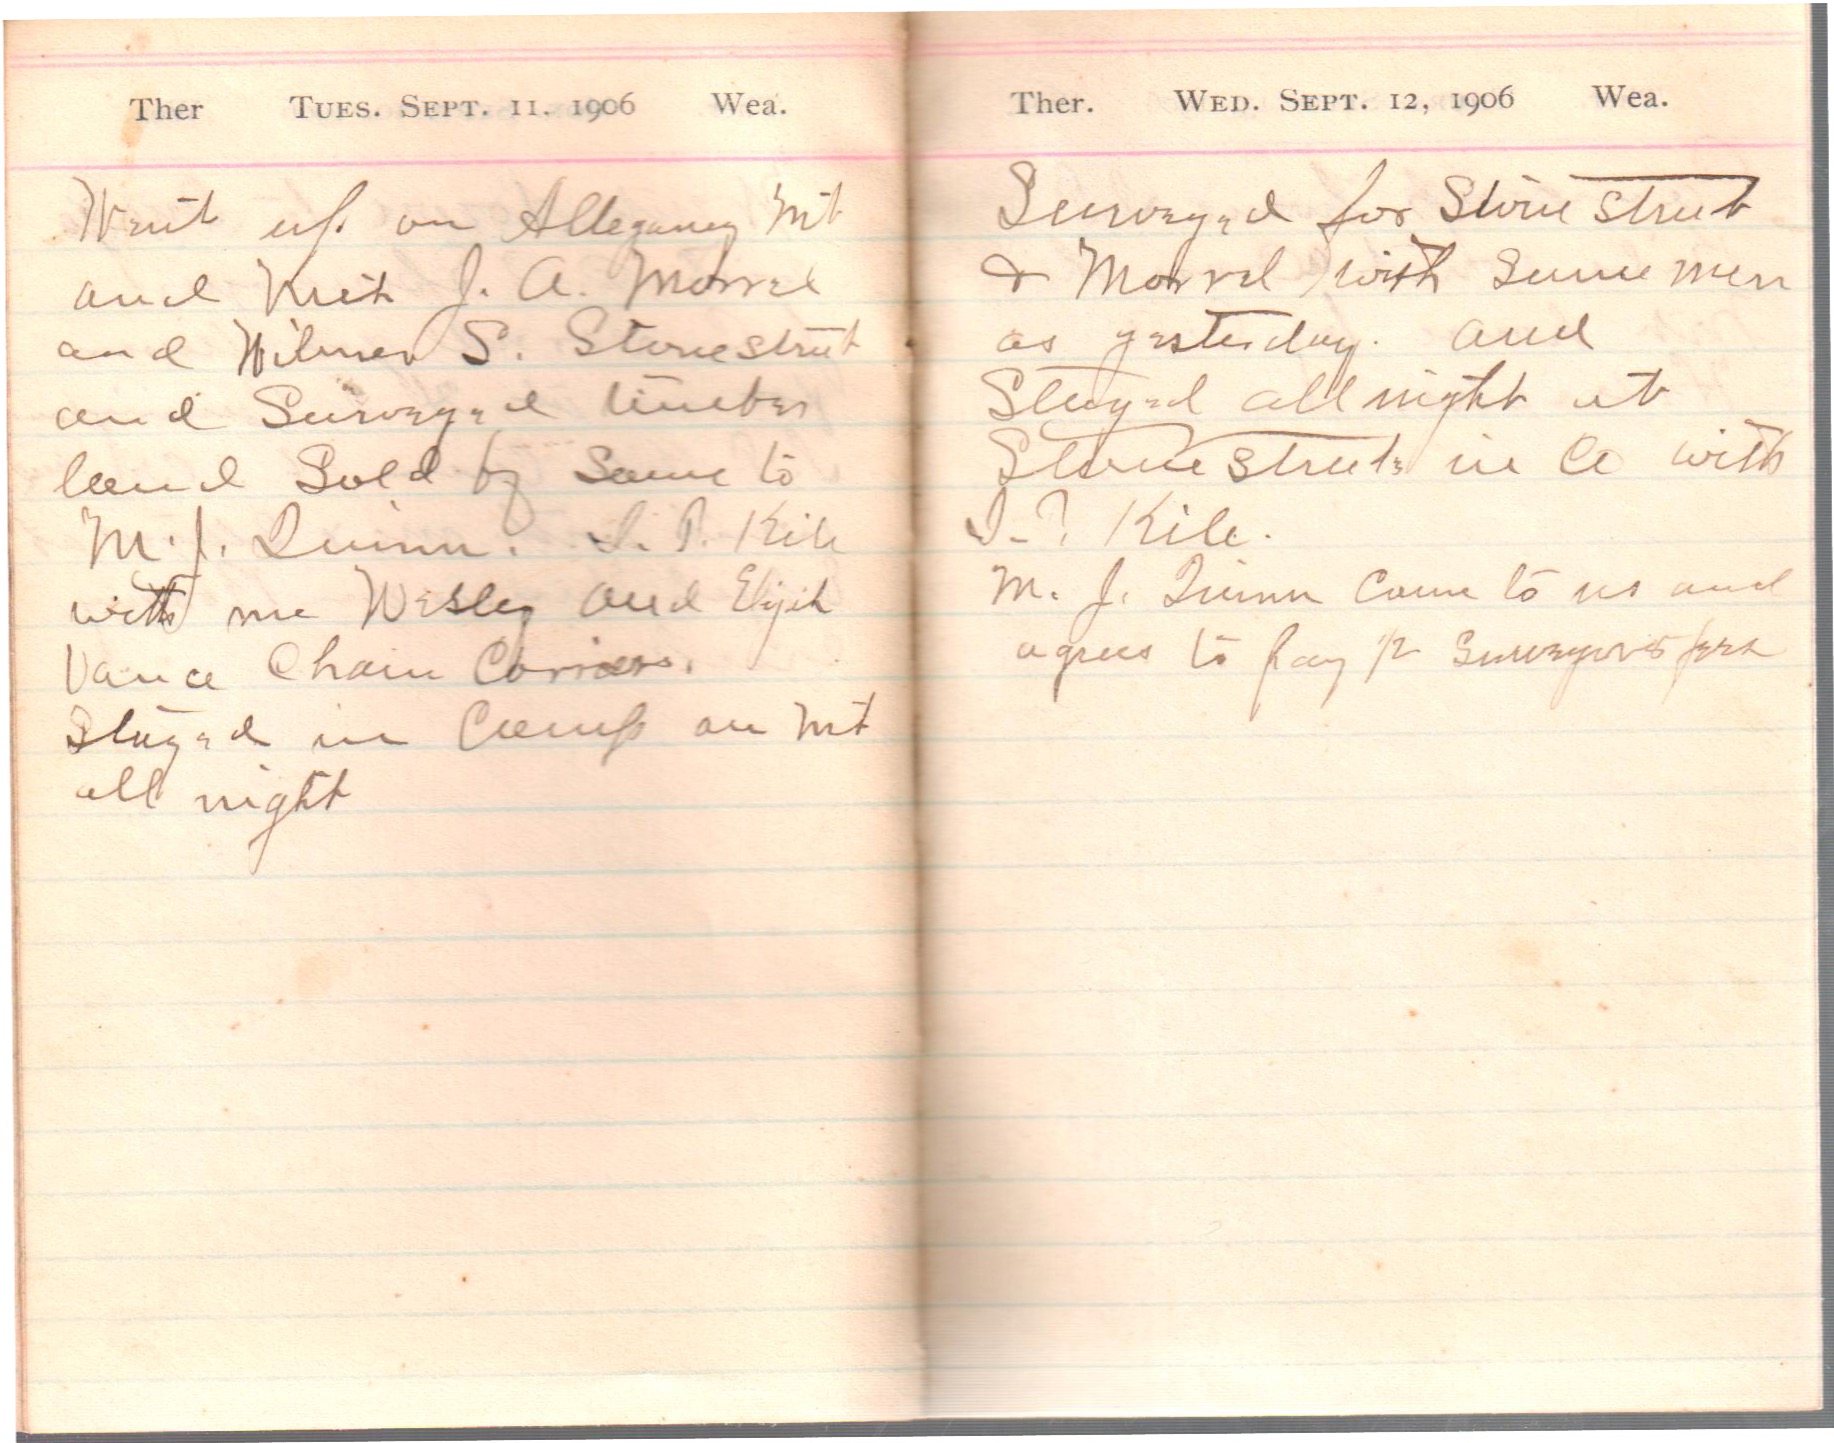 Ther Tues. Sept. 11, 1906 Wea.
Went up on Allegany Mt
and Met J. A. Morrel
and Wilmer S. Stonestreet
and Surveyed timber
land Sold by Same to
M. J. Quinn. I. P. Kile
with me Wesley and Elijah
Vance Chain Carriers.
Stayed in Camp on Mt
all night
Ther. Wed. Sept. 12, 1906 Wea.
Surveyed for Stonestreet
& Morrel with Same men
as yesterday. and
Stayed all night at
Stonestreets in Co with
I. P. Kile.
M. J. Quinn Came to us and
agrees to pay 1/2 Surveyors fees